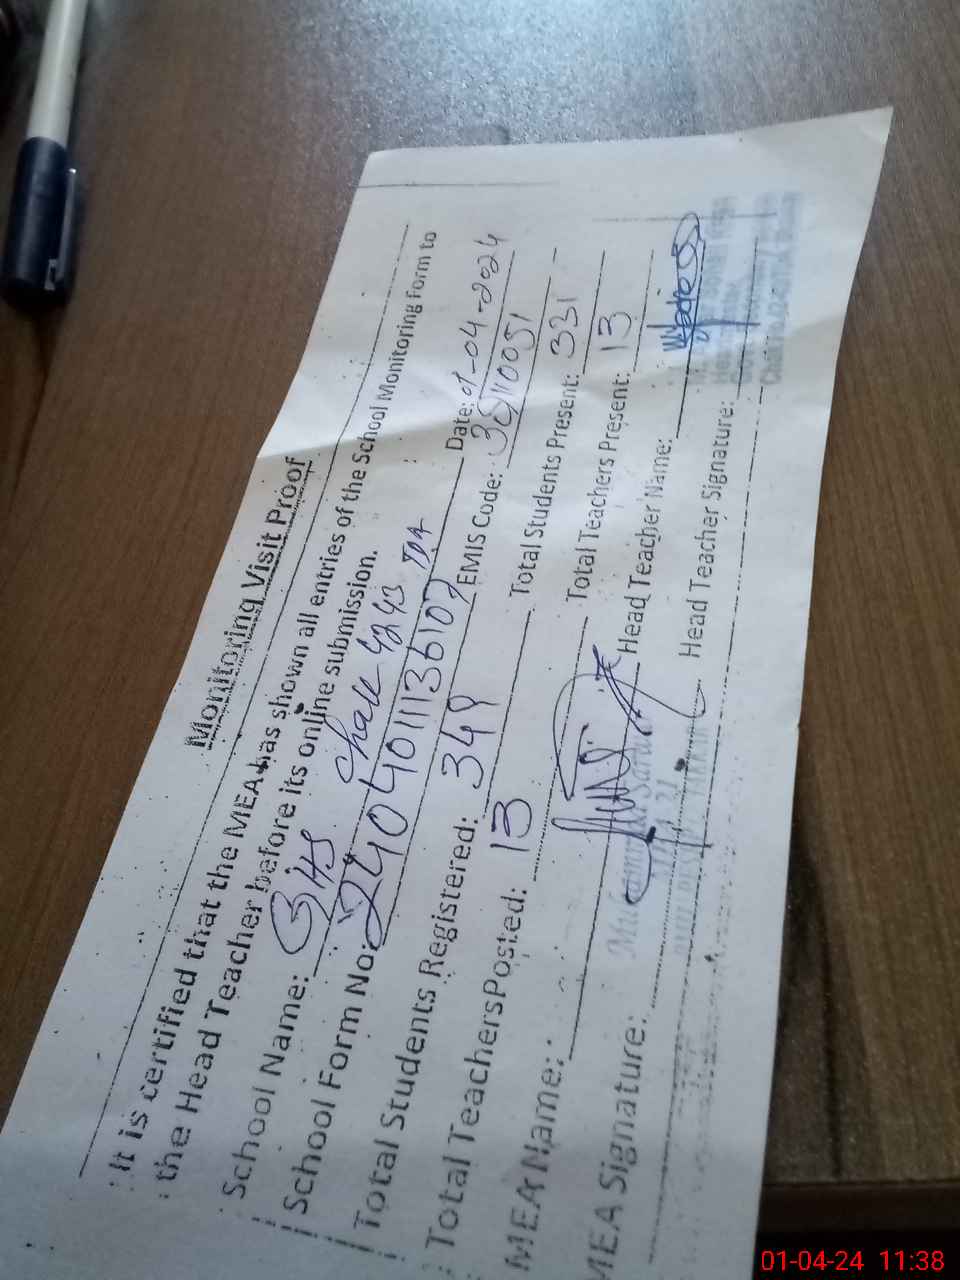 Monitoring Visit Proof
It is certified that the MEA has shown all entries of the School Monitoring Form to
the Head Teacher before its online submission.
School Name: GHS Chak 42/43 TDA Date: 01-04-2024
School Form No: 2404011136107 EMIS Code:
Total Students Registered: 348 Total Students Present: 331
Total Teachers Posted: 13 Total Teachers Present: 13
MEA Name: Head Teacher Name:
MEA Signature: Head Teacher Signature:
01-04-24 11:38